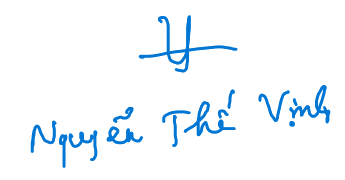 Nguyễn Thế Vịnh